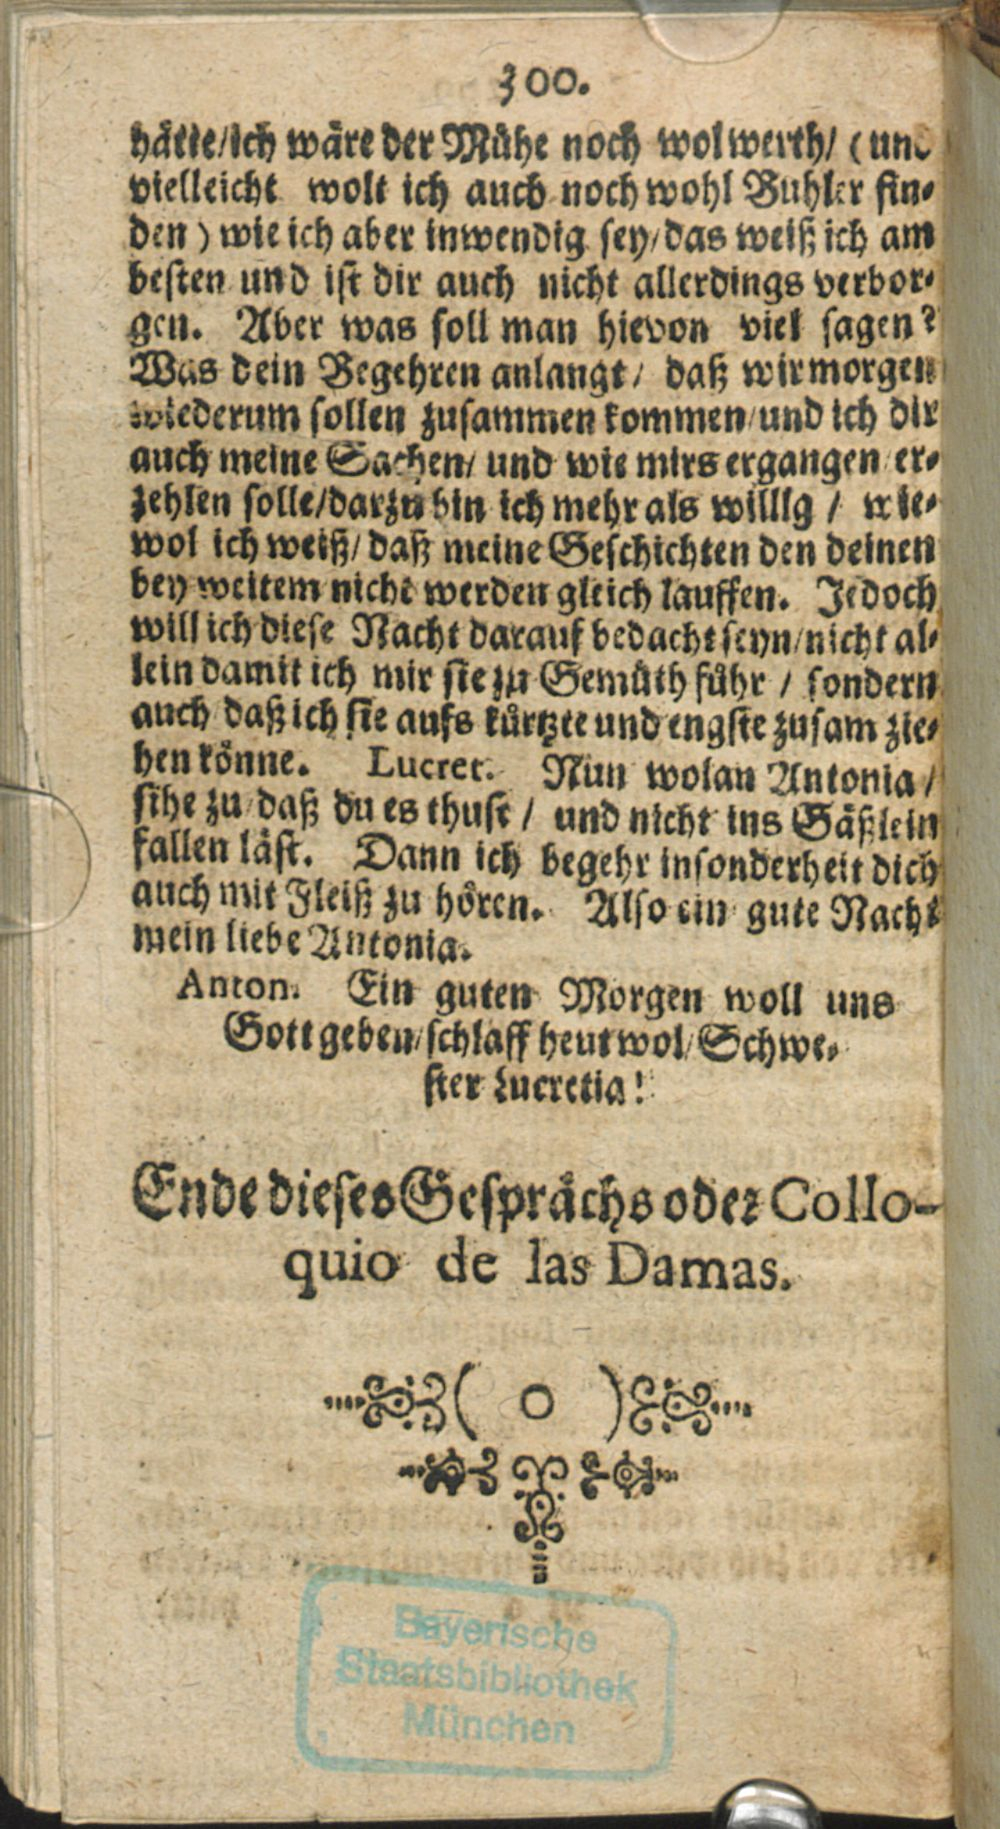 300.
hätte/ich wäre der Mühe noch wol werth/ (und
vielleicht wolt ich auch noch wohl Buhler fin-
den) wie ich aber inwendig sey/das weiß ich am
besten und ist dir auch nicht allerdings verbor-
gen. Aber was soll man hievon viel sagen?
Was dein Begehren anlangt/ daß wir morgen
wiederum sollen zusammen kommen/und ich dir
auch meine Sachen/ und wie mirs ergangen er-
zehlen solle/darzu bin ich mehr als willig / wie-
wol ich weiß/ daß meine Geschichten den deinen
bey weitem nicht werden gleich lauffen. Jedoch
will ich diese Nacht darauf bedacht seyn/nicht al-
lein damit ich mir sie zu Gemüth führ / sondern
auch daß ich sie aufs kürtzte und engste zusam zie-
hen könne. Lucret. Nun wolan Antonia /
sihe zu/daß du es thust / und nicht ins Gäßlein
fallen läst. Dann ich begehr insonderheit dich
auch mit Fleiß zu hören. Also ein gute Nacht
mein liebe Antonia.
Anton. Ein guten Morgen woll uns
Gott geben/schlaff heut wol/Schwe-
ster Lucretia!
Ende dieses Gesprächs oder Collo-
quio de las Damas.
( O )
Bayerische
Staatsbibliothek
München